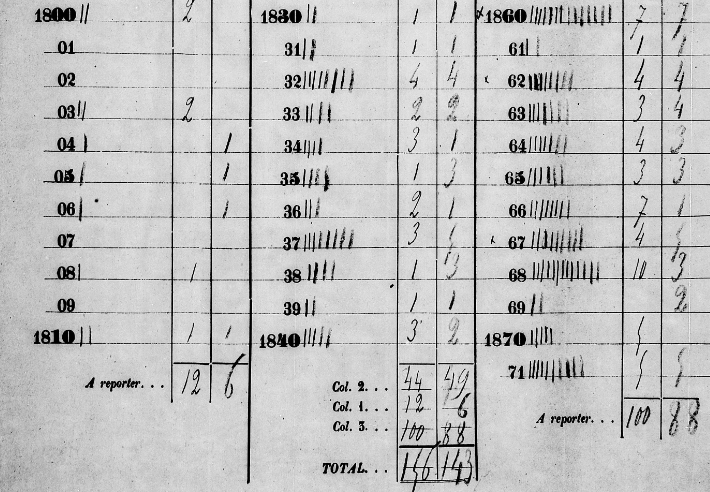 1800 2
01
02
03 2
04 1
05 1
06 1
07
08 1
09
1810 1 1
A reporter. . . 12 6
1830 1 1
31 1 1
32 4 4
33 2 2
34 3 1
35 1 3
36 2 1
37 3 5
38 1 3
39 1 1
1840 3 2
Col. 2. . . 44 49
Col. 1. . . 12 6
Col. 3. . . 100 88
TOTAL. . . 156 143
1860 7 7
61 1 1
62 4 4
63 3 4
64 4 3
65 3 3
66 7 1
67 4 5
68 10 3
69 2
1870 5
71 5 5
A reporter. . . 100 88